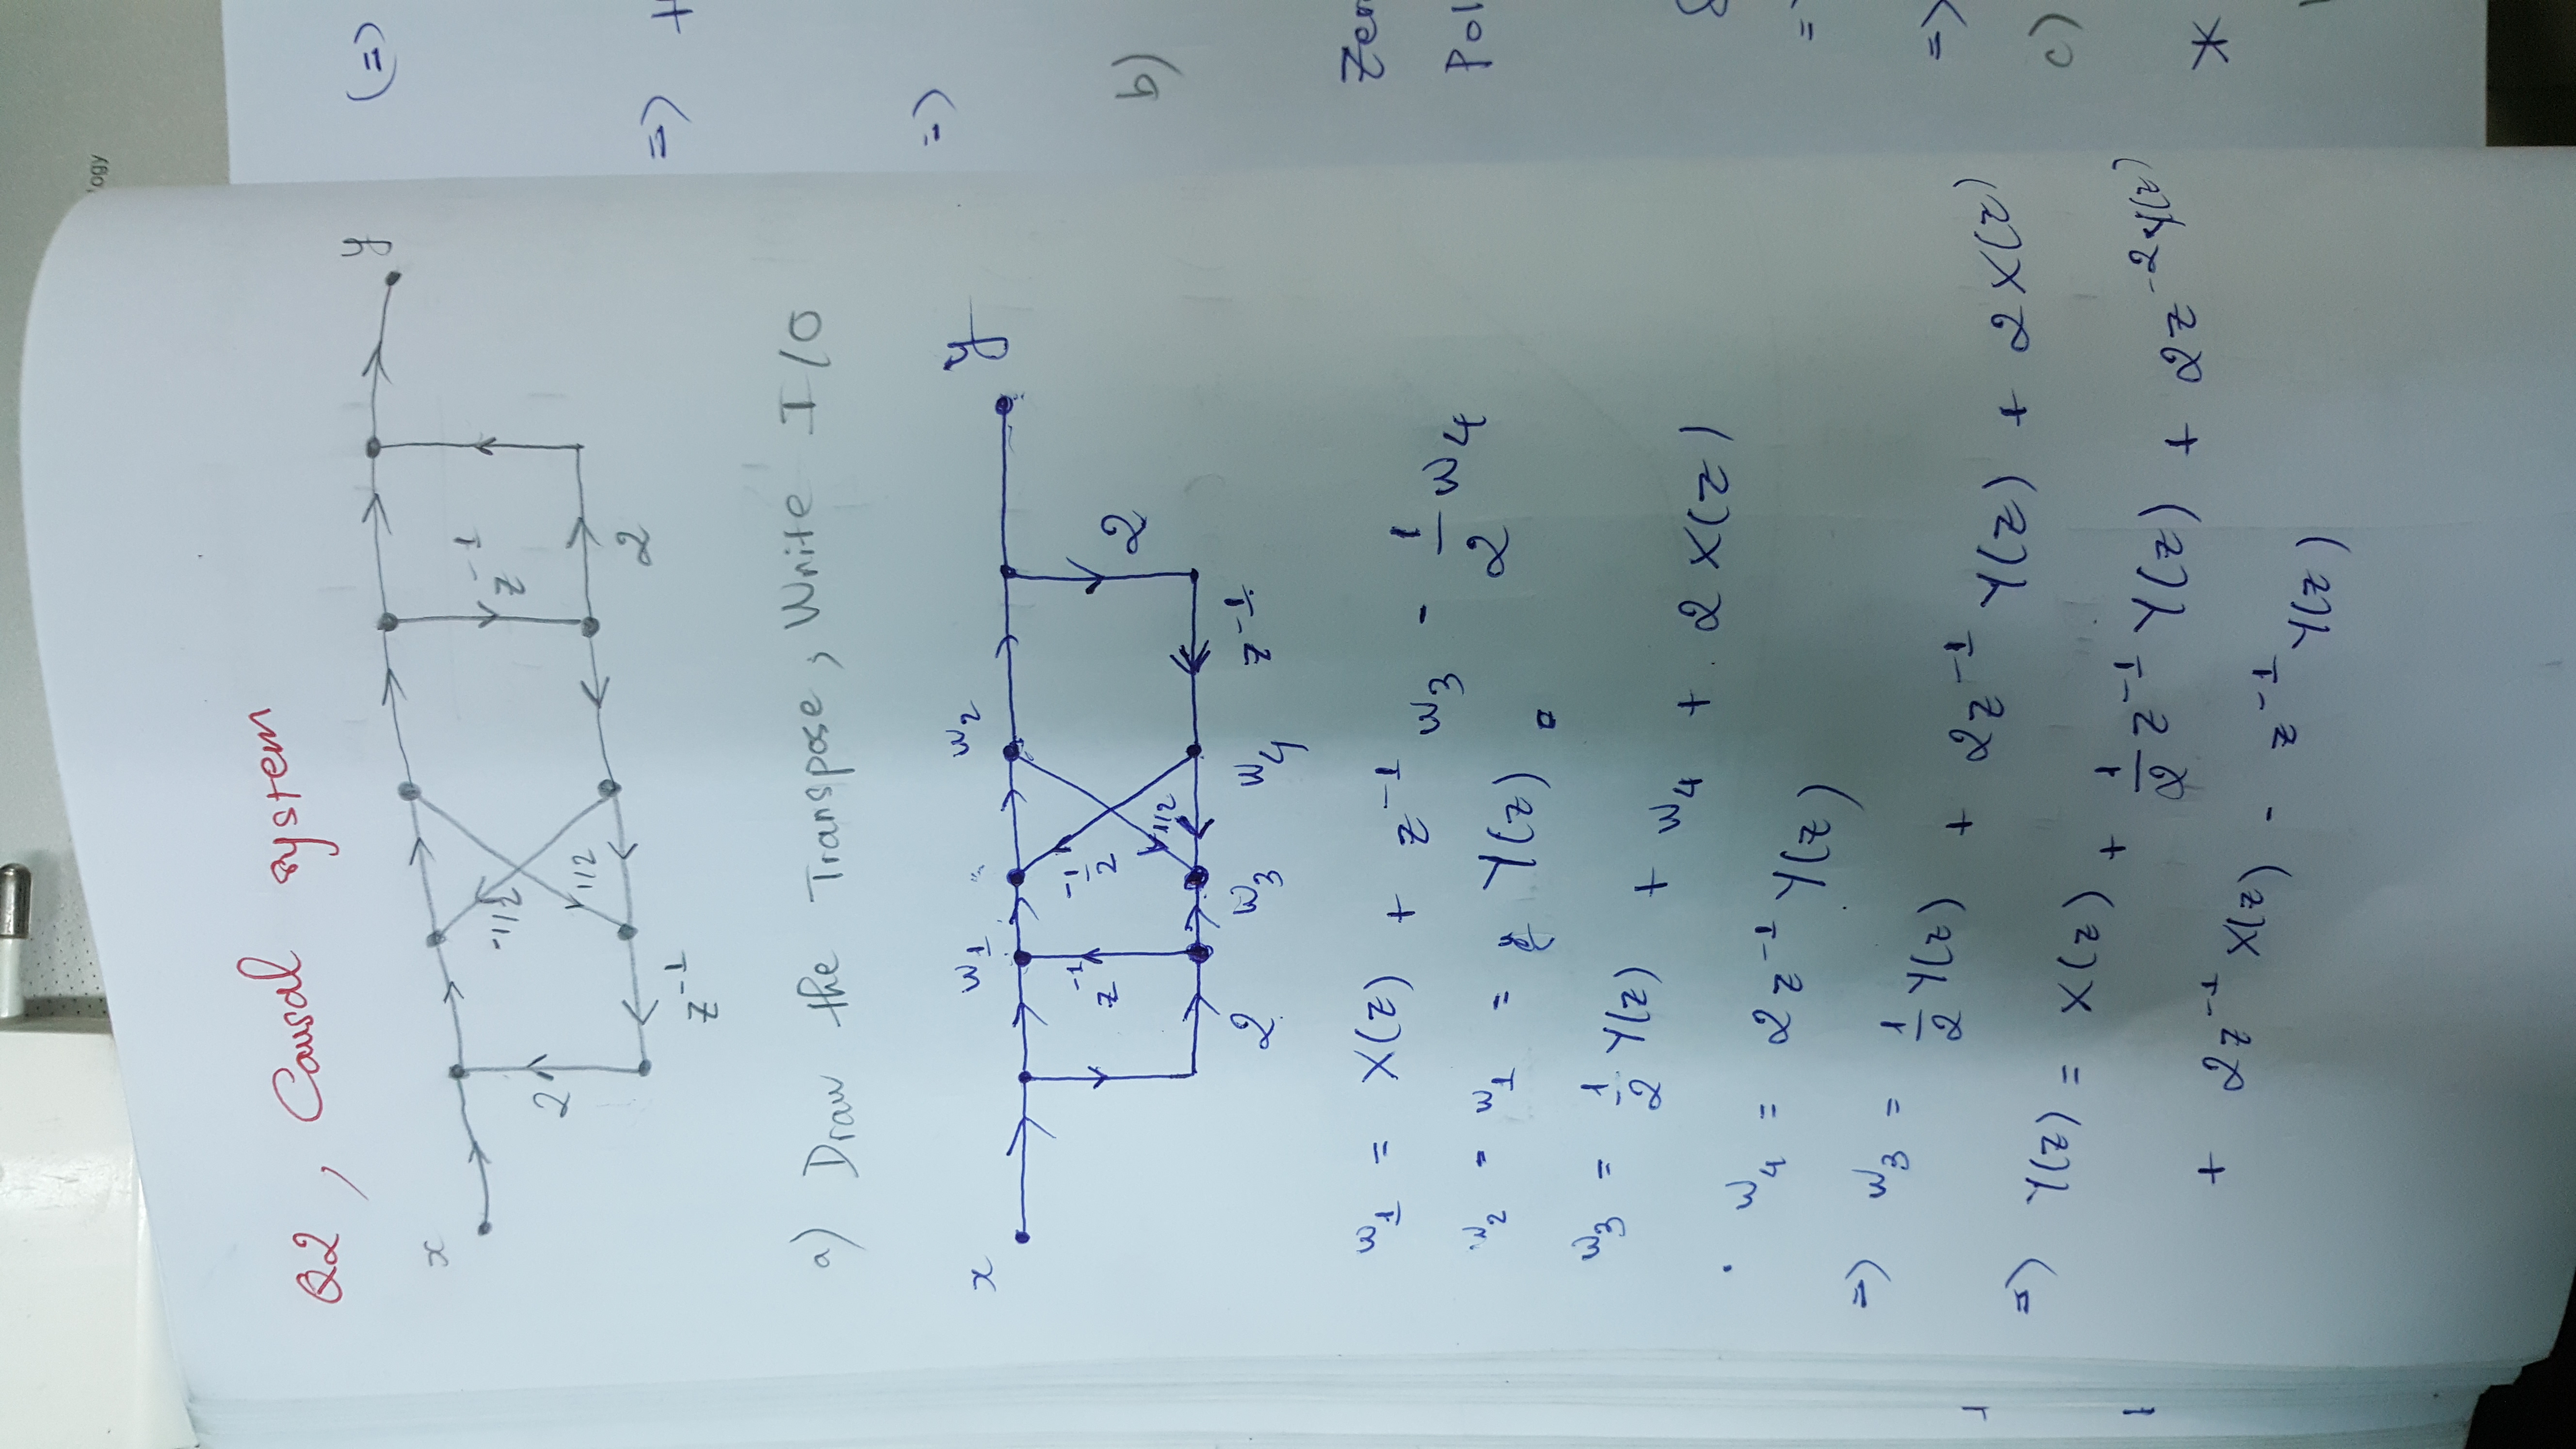 ogy
Q2, Causal system
x
y
-1/2
z⁻¹
2
1/2
2
z⁻¹
a) Draw the Transpose, Write I/O
x
w₁
w₂
y
z⁻¹
-1/2
2
1/2
2
w₃
w₄
z⁻¹
w₁ = X(z) + z⁻¹ w₃ - 1/2 w₄
w₂ = w₁ = Y(z).
w₃ = 1/2 Y(z) + w₄ + 2 X(z)
w₄ = 2z⁻¹ Y(z)
=) w₃ = 1/2 Y(z) + 2z⁻¹ Y(z) + 2X(z)
=) Y(z) = X(z) + 1/2 z⁻¹ Y(z) + 2z⁻² Y(z)
+ 2z⁻¹ X(z) - z⁻¹ Y(z)
(=)
=)
=)
b)
Zer
Pol
=)
c)
*